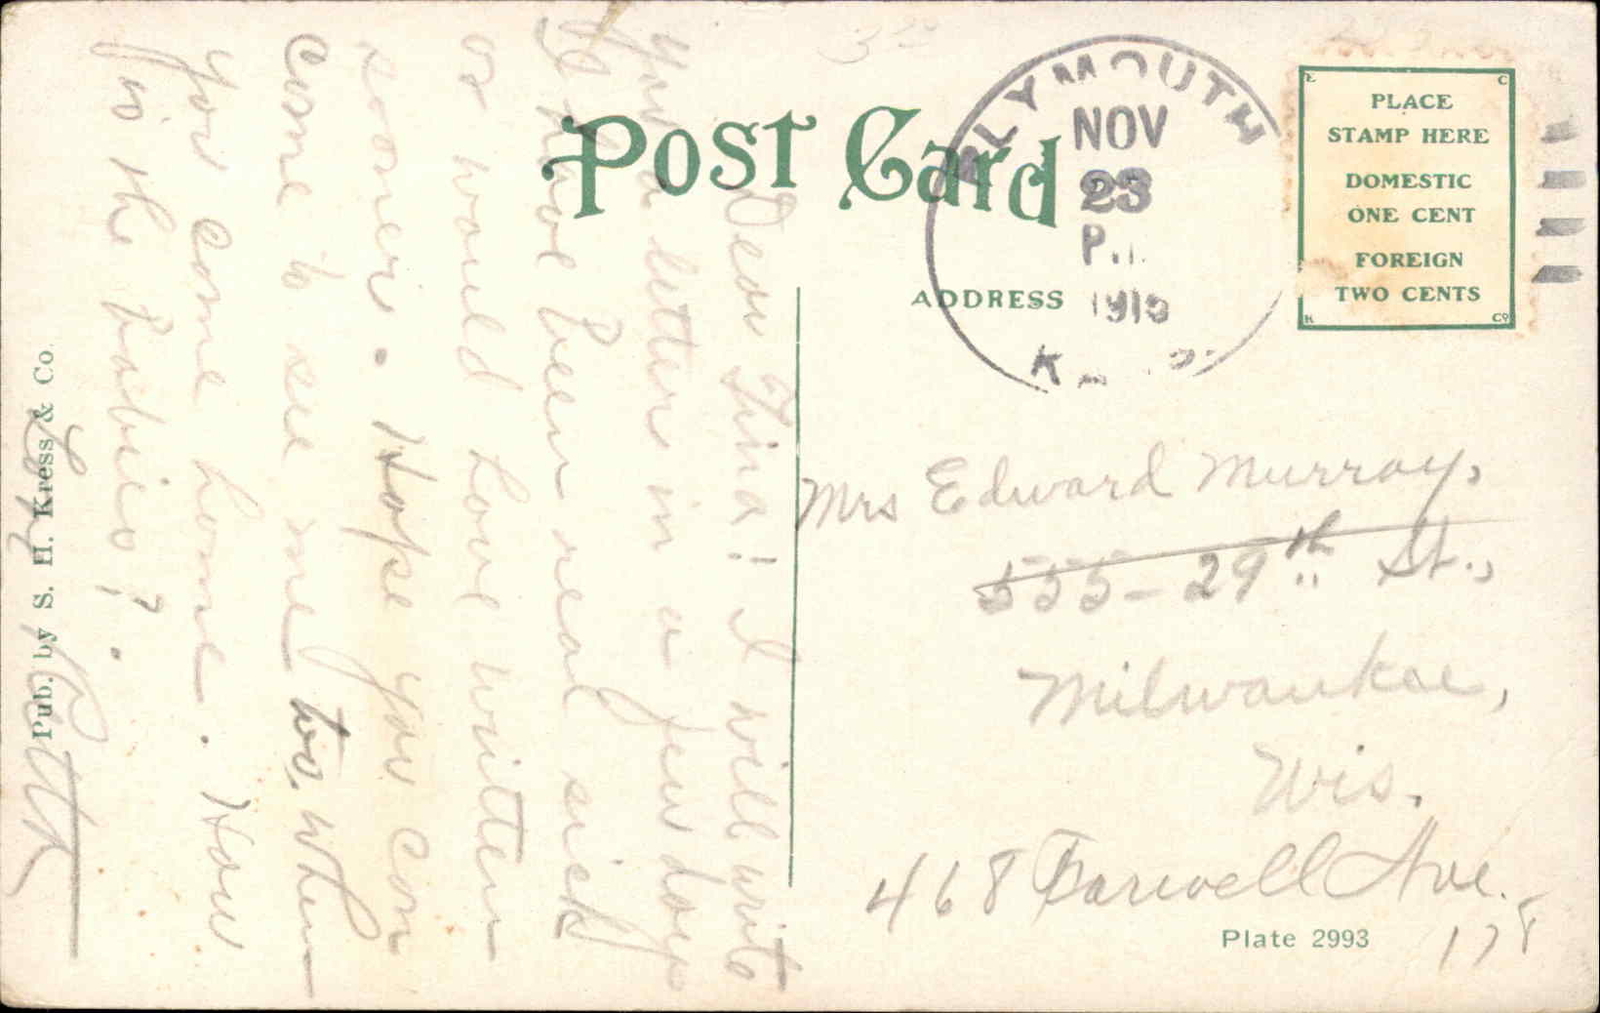 Post Card
PLYMOUTH
NOV
23
P.
1915
K
E C
PLACE
STAMP HERE
DOMESTIC
ONE CENT
FOREIGN
TWO CENTS
K Co
ADDRESS
Mrs Edward Murray,
555-29th St.,
Milwaukee,
Wis.
468 Farwell Ave.
178
Plate 2993
Dear Tina! I will write
you a letter in a few days
I have been real sick
or would have written
sooner. Hope you can
come to see me too. When
you come home. How
is the babies?
Pub. by S. H. Kress & Co.